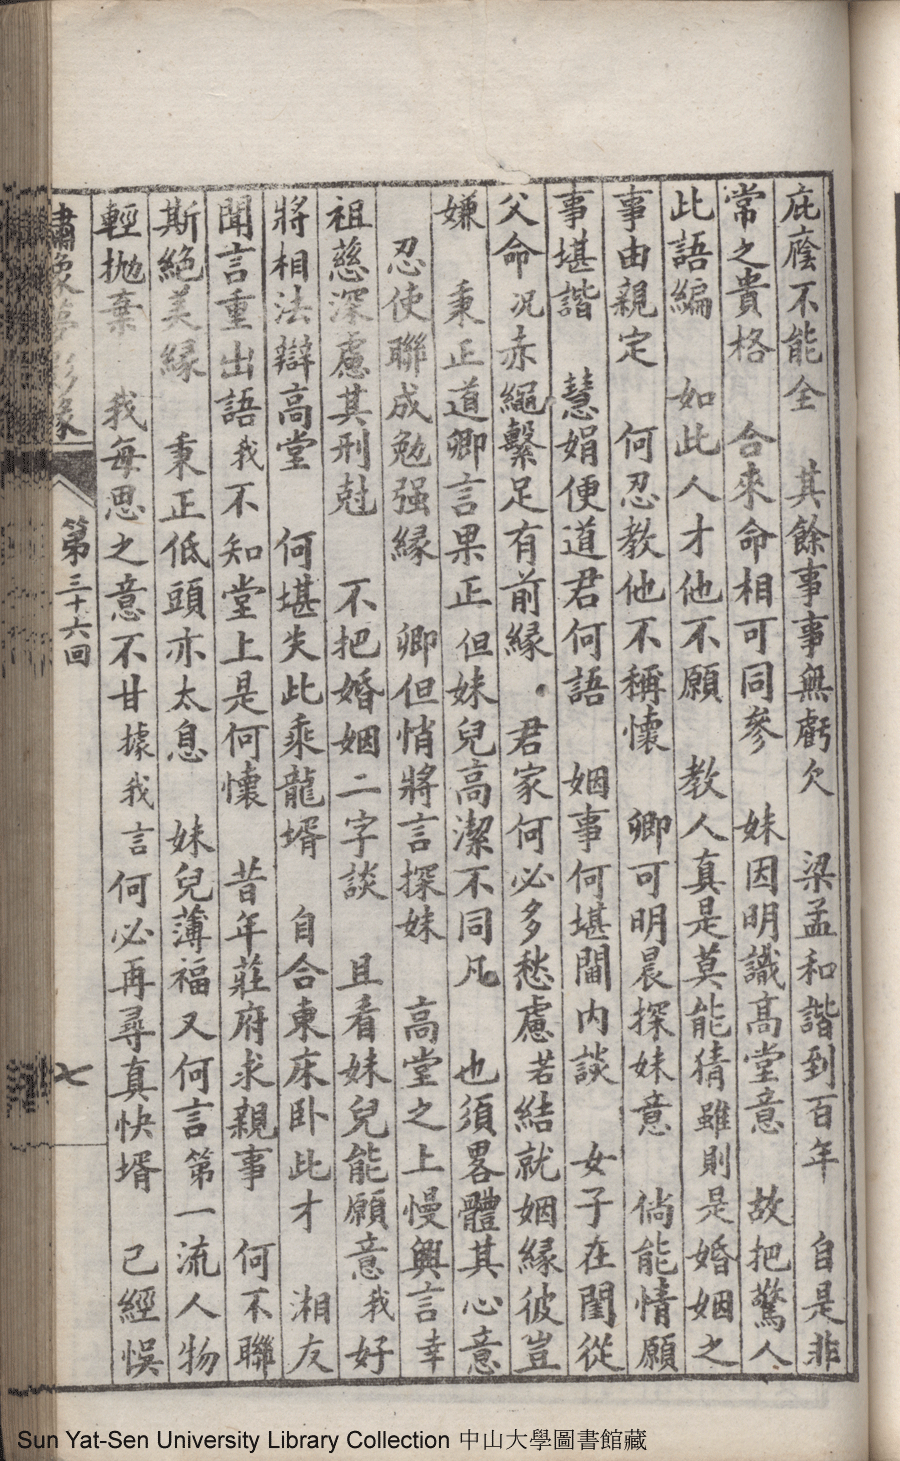 庇廕不能全　其餘事事無虧欠　梁孟和諧到百年　自是非
常之貴格　合來命相可同參　妹因明識高堂意　故把驚人
此語編　如此人才他不願　教人真是莫能猜雖則是婚姻之
事由親定　何忍教他不稱懷　卿可明晨探妹意　倘能情願
事堪諧　慧娟便道君何語　姻事何堪閫內談　女子在閨從
父命况赤繩繫足有前緣　君家何必多愁慮若結就姻緣彼豈
嫌　秉正道卿言果正但妹兒高潔不同凡　也須畧體其心意
忍使聯成勉强緣　卿但悄將言探妹　高堂之上慢興言幸
祖慈深慮其刑尅　不把婚姻二字談　且看妹兒能願意我好
將相法辯高堂　何堪失此乘龍壻　自合東床卧此才　湘友
聞言重出語我不知堂上是何懷　昔年莊府求親事　何不聯
斯絕美緣　秉正低頭亦太息　妹兒薄福又何言第一流人物
輕拋棄　我每思之意不甘據我言何必再尋真快壻　已經悞
第三十六回
七
Sun Yat-Sen University Library Collection 中山大學圖書館藏